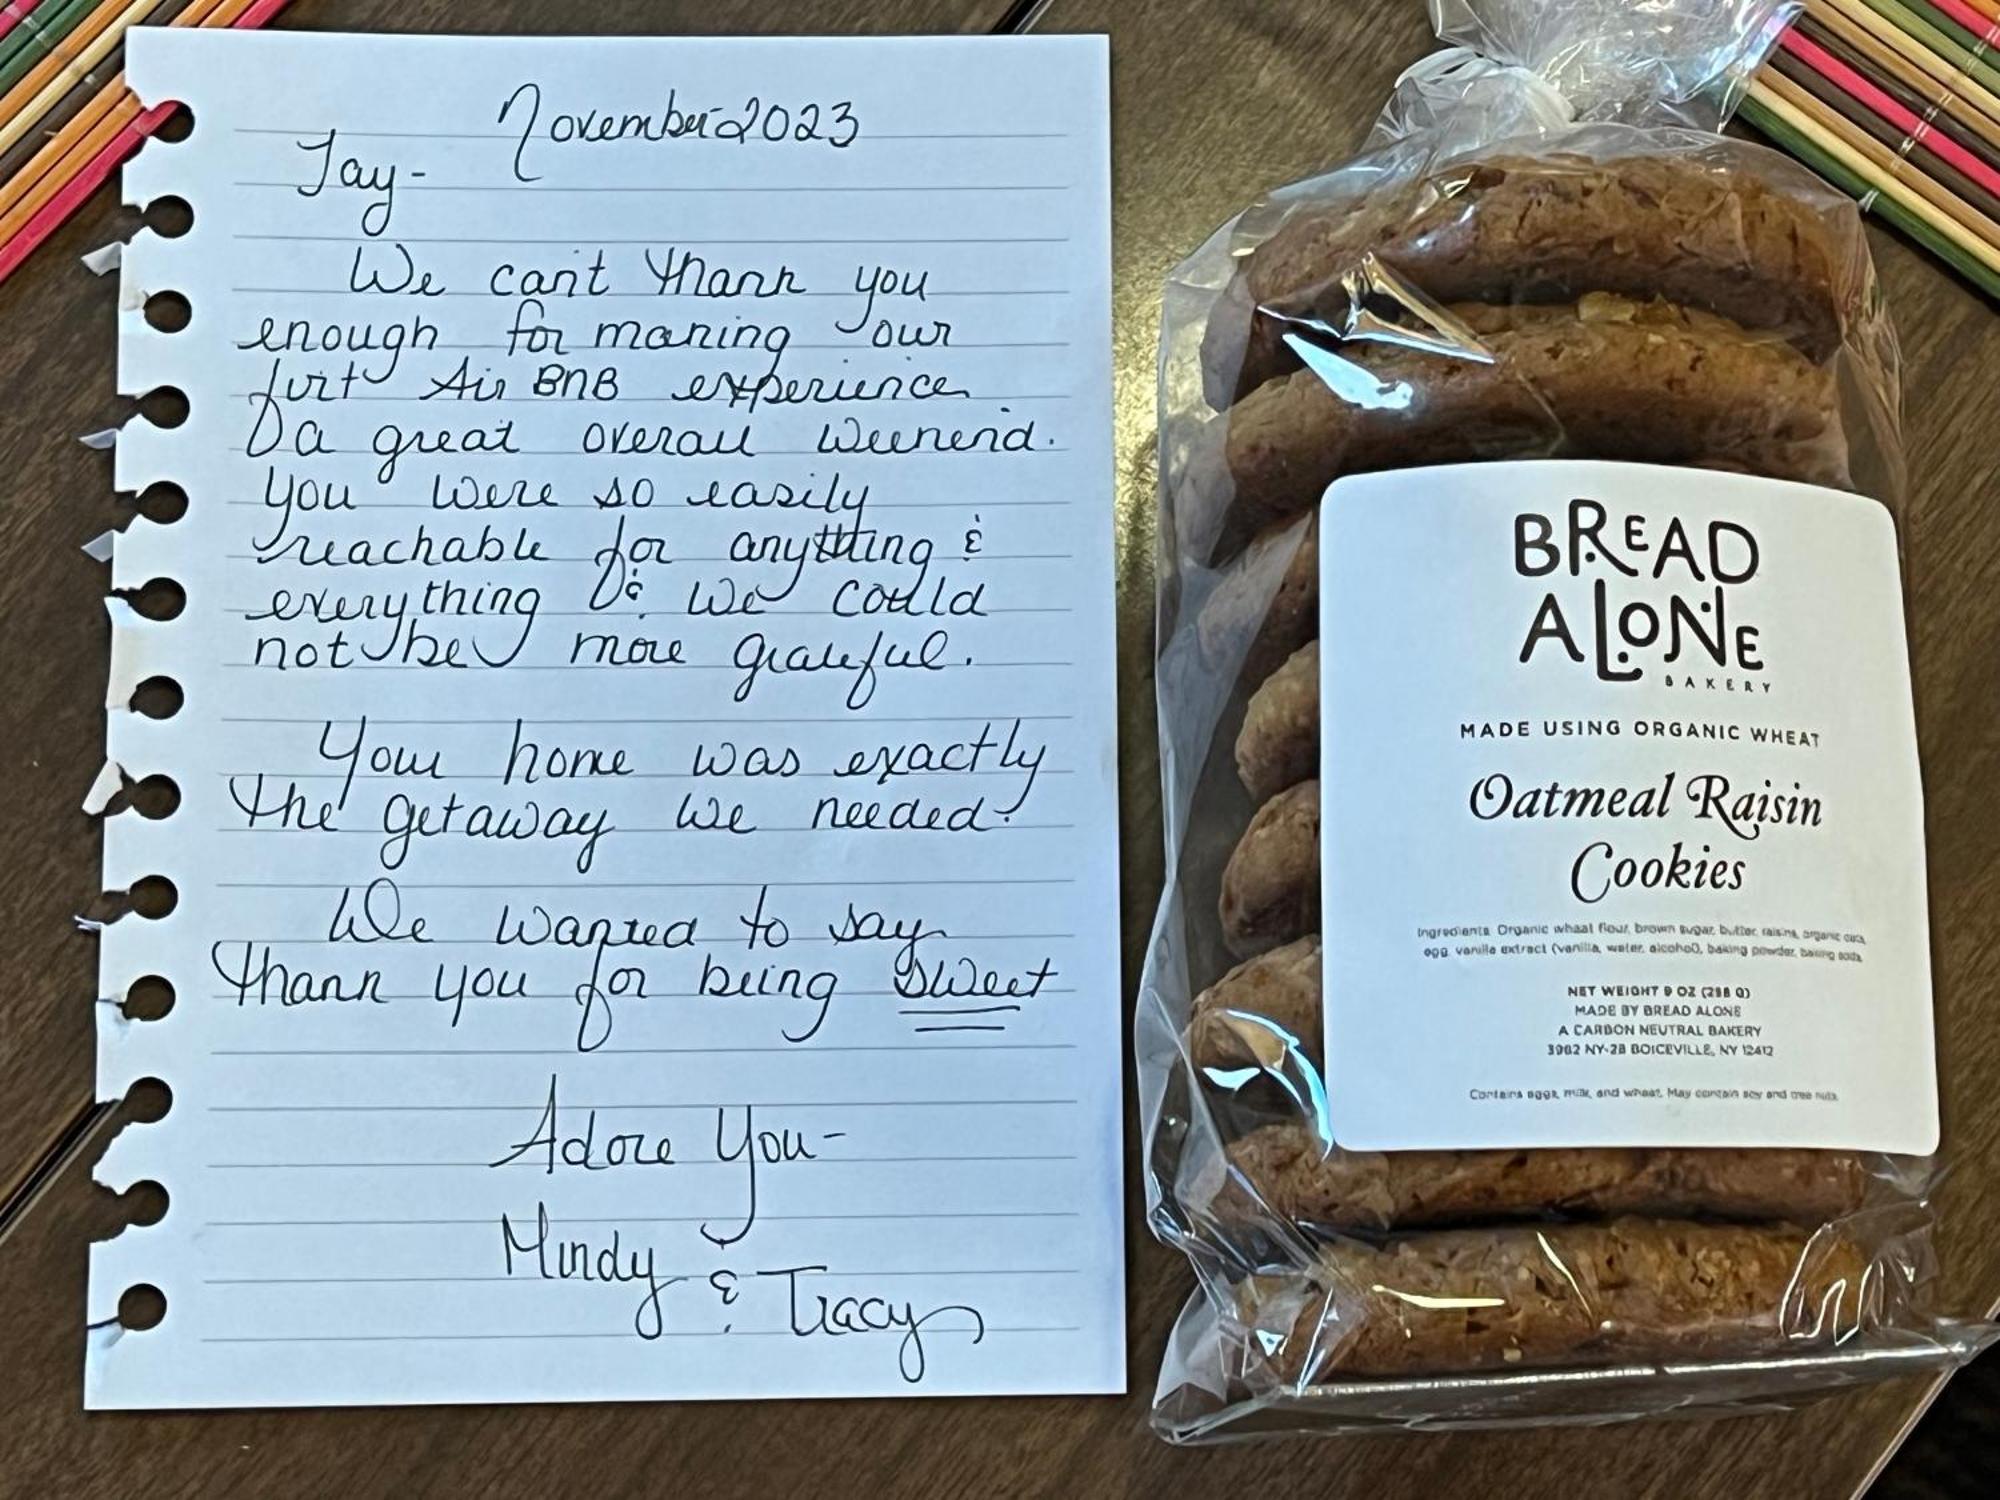 November 2023
Jay-
We can't thank you
enough for making our
first Air BNB experience
a great overall weekend.
You were so easily
reachable for anything &
everything & we could
not be more grateful.
Your home was exactly
the getaway we needed.
We wanted to say
thank you for being sweet
Adore You-
Mindy
& Tracy
BREAD
ALONE
BAKERY
MADE USING ORGANIC WHEAT
Oatmeal Raisin
Cookies
Ingredients: Organic wheat flour, brown sugar, butter, raisins, organic oats,
egg, vanilla extract (vanilla, water, alcohol), baking powder, baking soda,
NET WEIGHT 9 OZ
MADE BY BREAD ALONE
A CARBON NEUTRAL BAKERY
3962 NY-28 BOICEVILLE, NY 12412
Contains eggs, milk, and wheat. May contain soy and tree nuts.